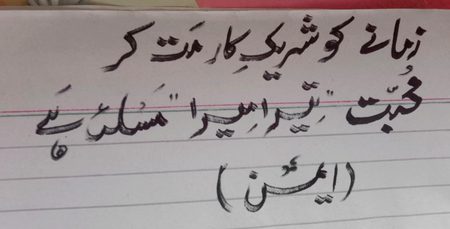 زمانے کو شریکِ کار مت کر
محبّت "تیرا میرا" مسئلہ ہے
(ایمن)